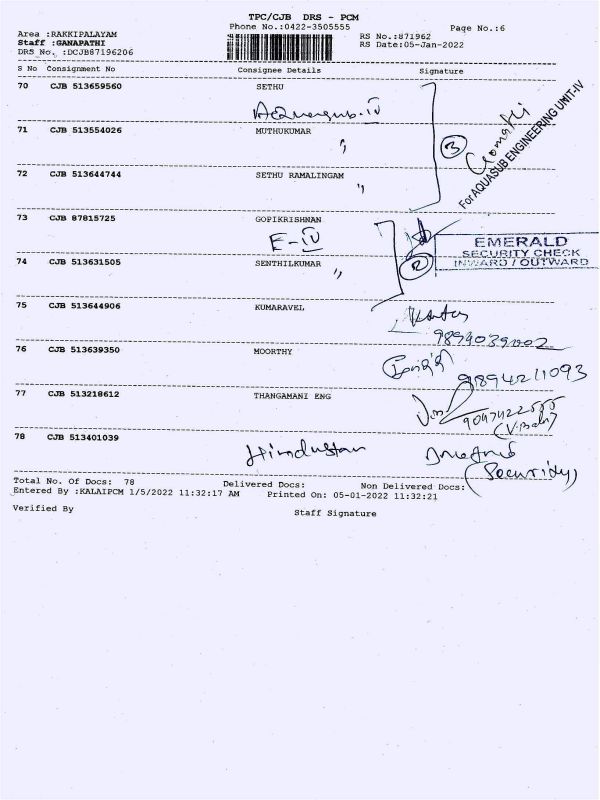 TPC/CJB DRS - PCM
Phone No.:0422-3505555
Page No.:6
Area :RAKKIPALAYAM
RS No.:871962
Staff :GANAPATHI
RS Date:05-Jan-2022
DRS No. :DCJB87196206
S No Consignment No Consignee Details Signature
70 CJB 513659560 SETHU
Aquasub-IV
71 CJB 513554026 MUTHUKUMAR
"
3
Gomathi
For AQUASUB ENGINEERING UNIT-IV
72 CJB 513644744 SETHU RAMALINGAM
"
73 CJB 87815725 GOPIKRISHNAN
E-IV
EMERALD
SECURITY CHECK
INWARD / OUTWARD
74 CJB 513631505 SENTHILKUMAR
"
75 CJB 513644906 KUMARAVEL
76 CJB 513639350 MOORTHY
9894211093
77 CJB 513218612 THANGAMANI ENG
78 CJB 513401039
Hindustan
(Security)
Total No. Of Docs: 78 Delivered Docs: Non Delivered Docs:
Entered By :KALAIPCM 1/5/2022 11:32:17 AM Printed On: 05-01-2022 11:32:21
Verified By Staff Signature